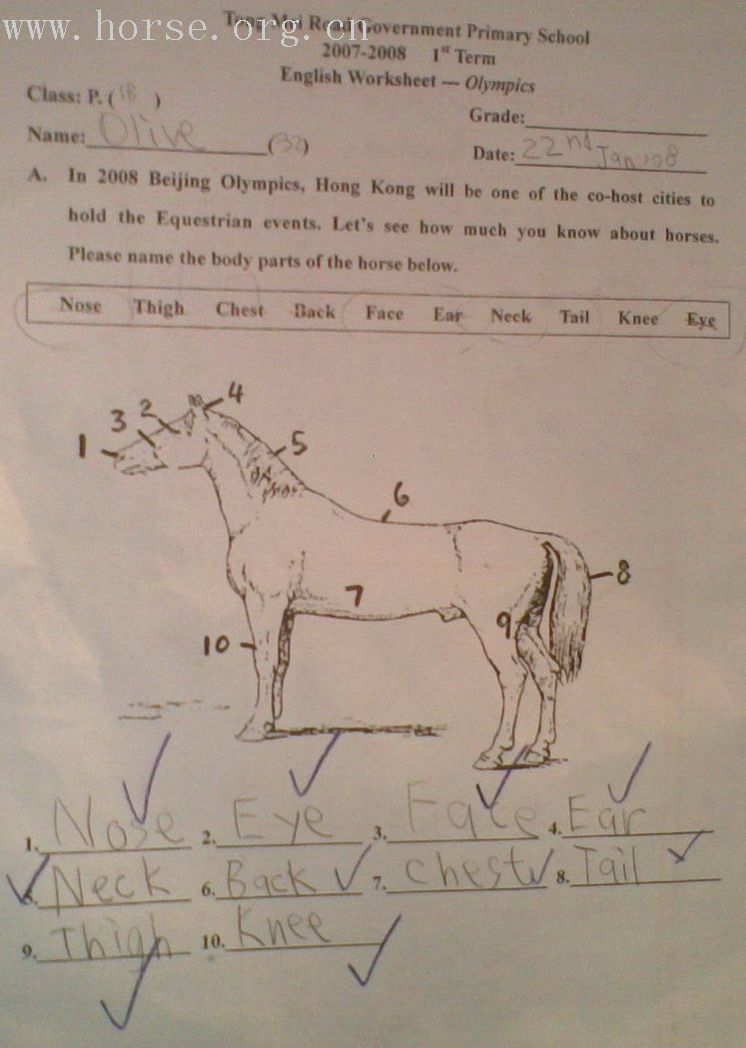 www.horse.org.cn
Road Government Primary School
2007-2008 1st Term
English Worksheet — Olympics
Class: P. (1B)
Grade:
Name: Olive (32)
Date: 22nd Jan, 08
A. In 2008 Beijing Olympics, Hong Kong will be one of the co-host cities to
hold the Equestrian events. Let's see how much you know about horses.
Please name the body parts of the horse below.
Nose Thigh Chest Back Face Ear Neck Tail Knee Eye
4
2
3
1
5
6
8
7
9
10
1. Nose 2. Eye 3. Face 4. Ear
5. Neck 6. Back 7. Chest 8. Tail
9. Thigh 10. Knee